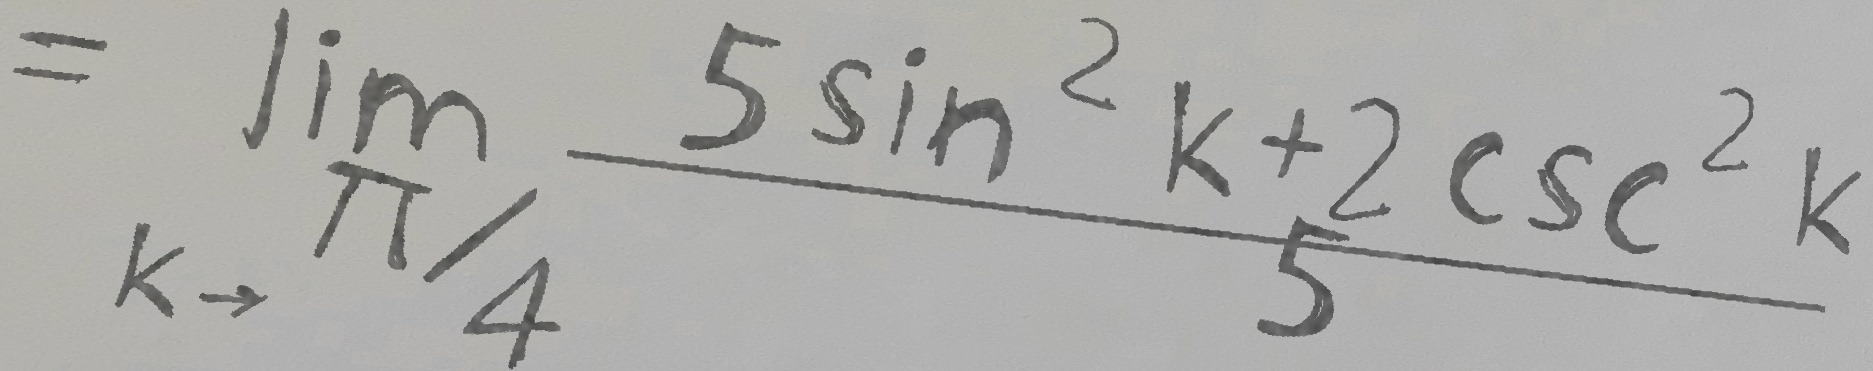 = \lim_{k \to \pi/4} \frac{5 \sin^2 k + 2 \csc^2 k}{5}